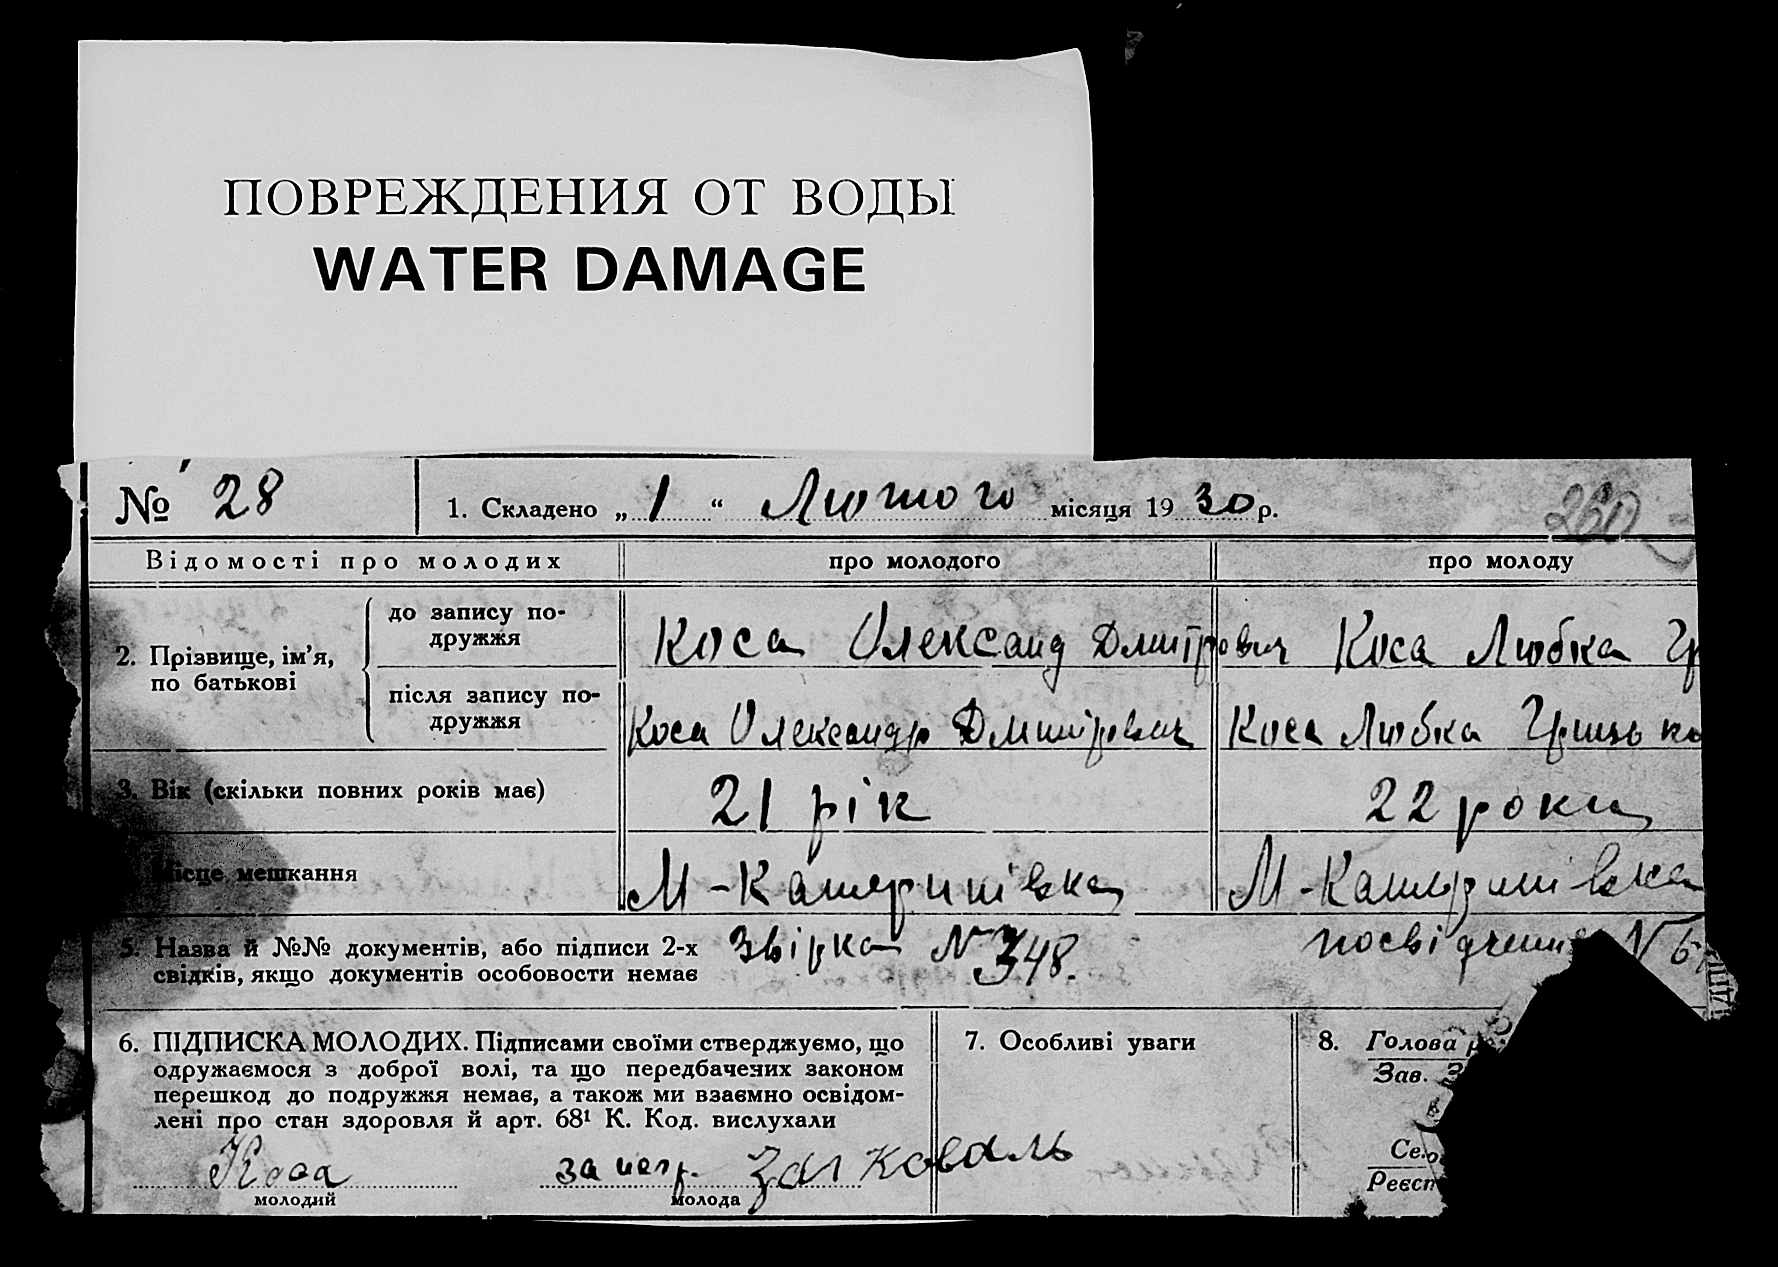 ПОВРЕЖДЕНИЯ ОТ ВОДЫ
WATER DAMAGE
№ 28 1. Складено „ 1 “ Лютого місяця 19 30 р.
Відомості про молодих про молодого про молоду
2. Прізвище, ім’я, по батькові
до запису по-
дружжя
Коса Олександ Дмитрович Коса Любка Гр
після запису по-
дружжя
Коса Олександр Дмитрович Коса Любка Грицько
3. Вік (скільки повних років має) 21 рік 22 роки
Місце мешкання М-Катеринівка М-Катеринівка
5. Назва й №№ документів, або підписи 2-х
свідків, якщо документів особовости немає
Звірка № 348. посвідчення № 6
6. ПІДПИСКА МОЛОДИХ. Підписами своїми стверджуємо, що
одружаємося з доброї волі, та що передбачених законом
перешкод до подружжя немає, а також ми взаємно освідом-
лені про стан здоровля й арт. 68¹ К. Код. вислухали
Коса за негр. Коваль
молодий молода
7. Особливі уваги
8. Голова
Зав.
Се
Реєст